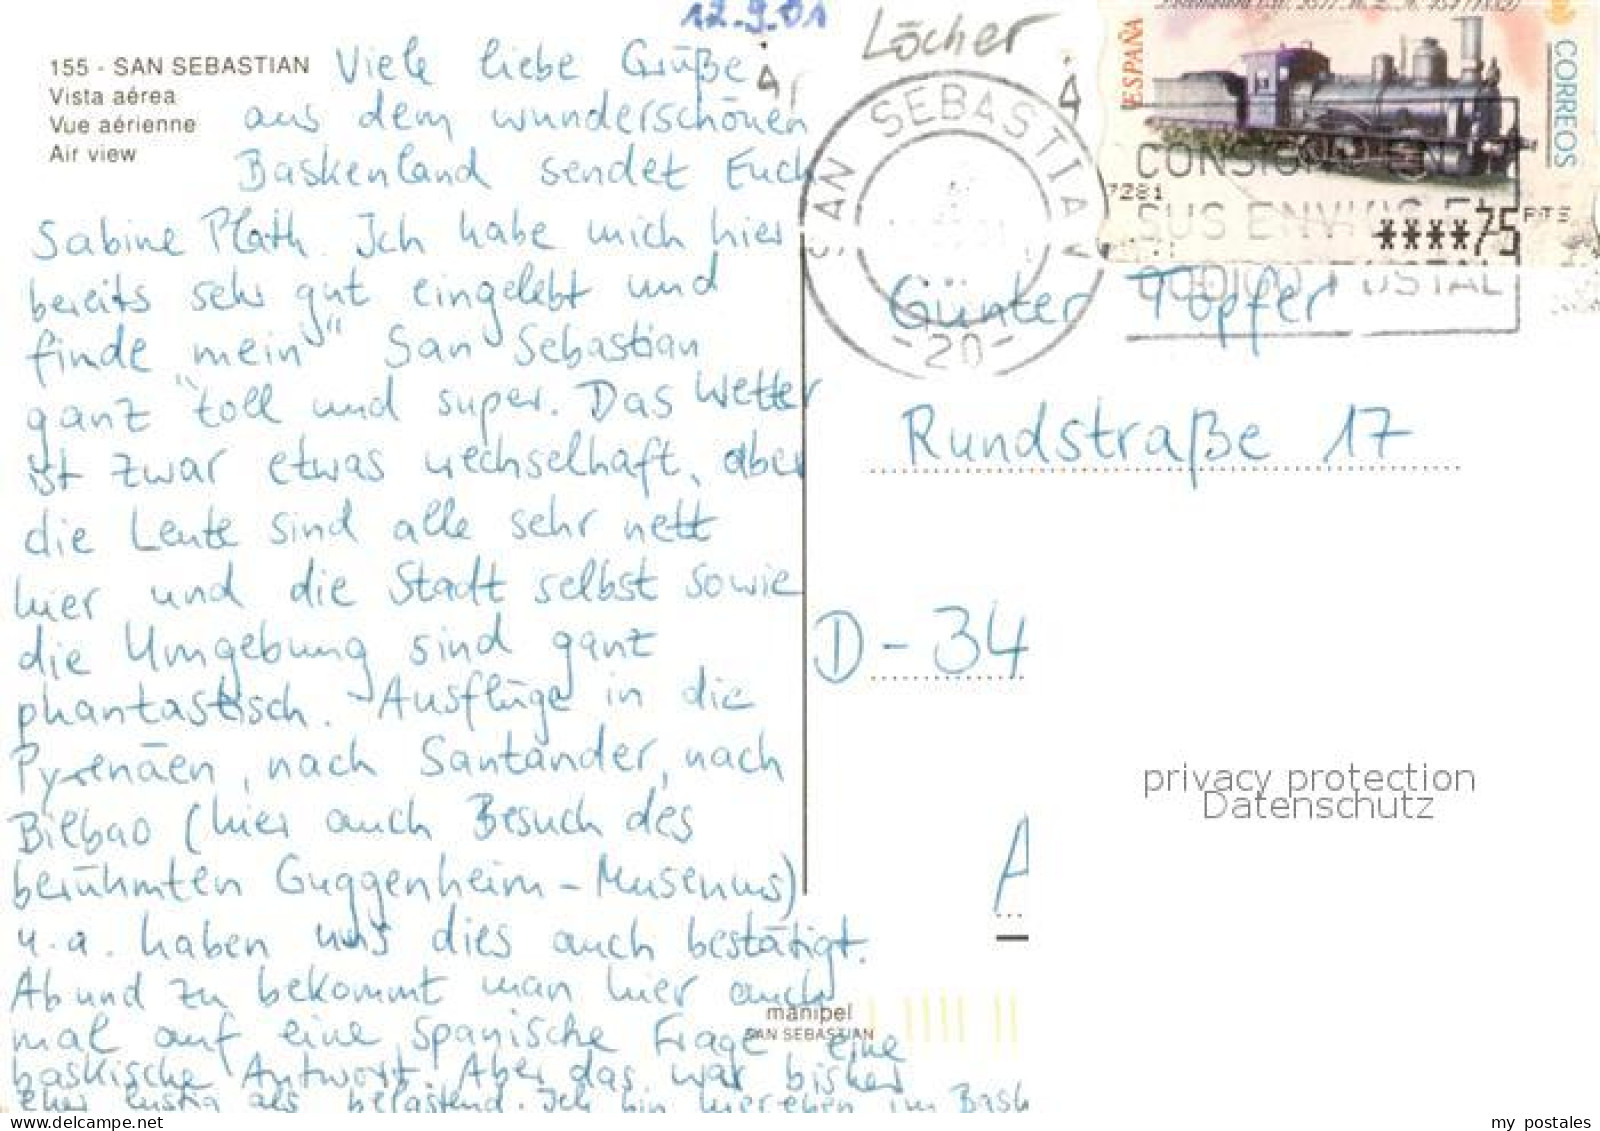 12.9.01
Löcher
155 - SAN SEBASTIAN
Vista aérea
Vue aérienne
Air view
Viele liebe Grüße
aus dem wunderschönen
Baskenland sendet Euch
Sabine Plath. Ich habe mich hier
bereits sehr gut eingelebt und
finde „mein“ San Sebastian
ganz toll und super. Das Wetter
ist zwar etwas wechselhaft, aber
die Leute sind alle sehr nett
hier und die Stadt selbst sowie
die Umgebung sind ganz
phantastisch. Ausflüge in die
Pyrenäen, nach Santander, nach
Bilbao (hier auch Besuch des
berühmten Guggenheim-Museums)
u.a. haben uns dies auch bestätigt.
Ab und zu bekommt man hier auch
mal auf eine spanische Frage eine
baskische Antwort. Aber das war bisher
eher lustig als belastend. Ich bin hier eben im Bask
manipel
SAN SEBASTIAN
SAN SEBASTIAN
-20-
ESPAÑA
CORREOS
7281
****75 PTS
SUS ENVIOS
POSTAL
Günter Töpfer
Rundstraße 17
D-34
A
privacy protection
Datenschutz
my postales
delcampe.net